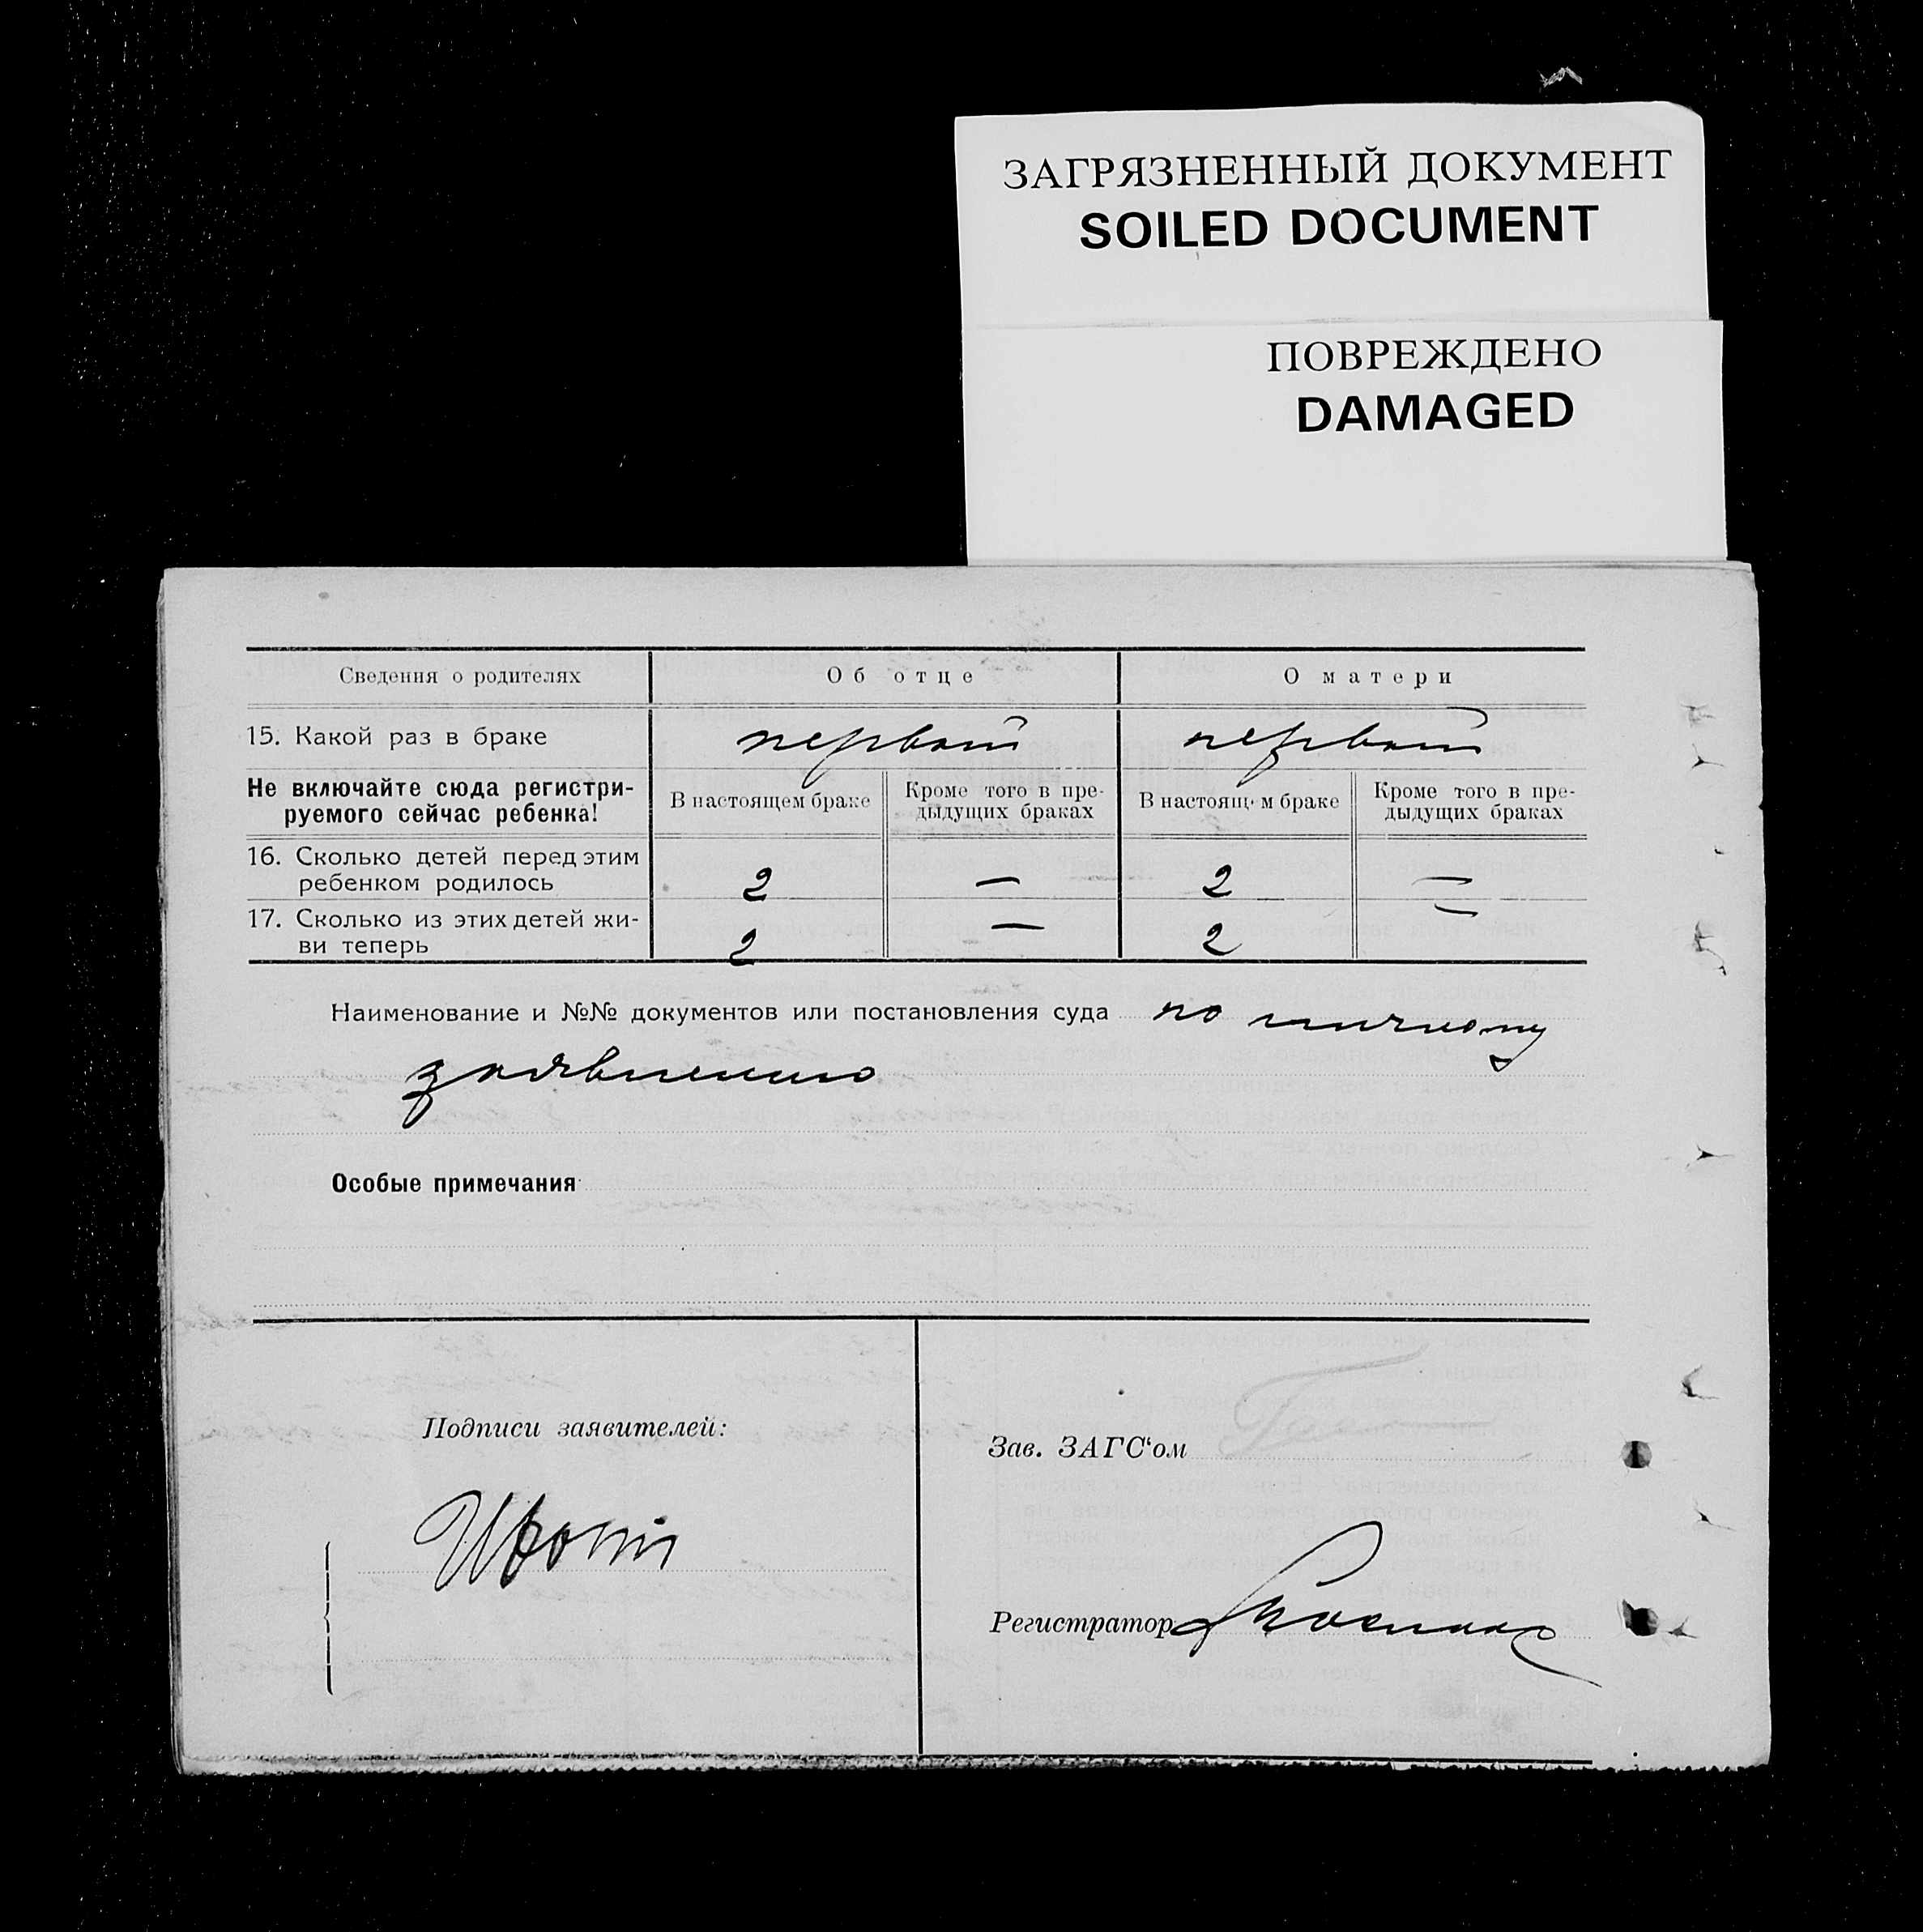 ЗАГРЯЗНЕННЫЙ ДОКУМЕНТ
SOILED DOCUMENT
ПОВРЕЖДЕНО
DAMAGED
Сведения о родителях Об отце О матери
15. Какой раз в браке первый первый
Не включайте сюда регистри-
руемого сейчас ребенка!
В настоящем браке
Кроме того в пре-
дыдущих браках
В настоящем браке
Кроме того в пре-
дыдущих браках
16. Сколько детей перед этим
ребенком родилось 2 — 2 —
17. Сколько из этих детей жи-
ви теперь 2 — 2 —
Наименование и №№ документов или постановления суда по личному
заявлению
Особые примечания
Подписи заявителей:
Зав. ЗАГС'ом
Регистратор